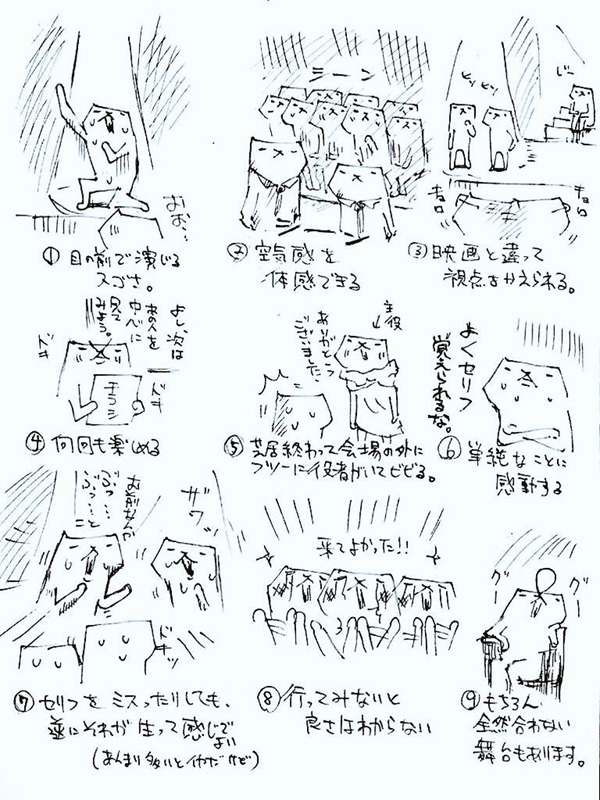 おお…
①目の前で演じる
スゴさ。
シーン
②空気感を
体感できる
ヒソ
ヒソ
じー
キョロ
キョロ
③映画と違って
視点をかえられる。
よし、次は
あの人を
中心に
見て
みよう。
チラシ
ドキ
ドキ
④何回も楽しめる
主役
ありがとう
ございました
⑤芝居終わって会場の外に
フツーに役者がいてビビる。
よくセリフ
覚えられるな。
⑥単純なことに
感動する
お前なんか
ぶっ…
ぶっ…こと
ザワッ
ドキッ
⑦セリフをミスったりしても、
逆にそれが生って感じで
よい
(あんまり多いとイヤだけど)
来てよかった!!
⑧行ってみないと
良さはわからない
グー
グー
⑨もちろん
全然合わない
舞台もあります。